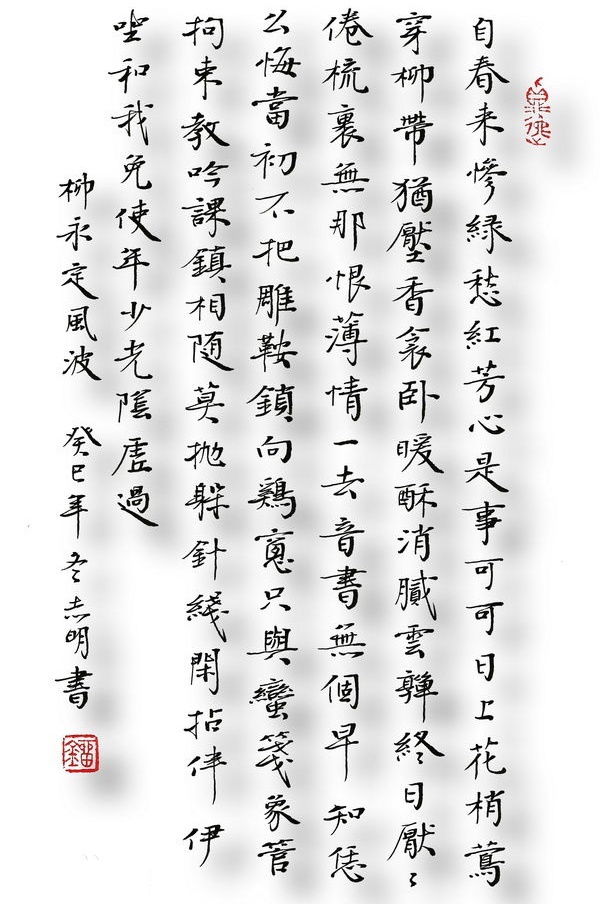 自春来慘緑愁紅芳心是事可可日上花梢鶯
穿柳帶猶壓香衾卧暖酥消膩雲嚲終日厭〻
倦梳裹無那恨薄情一去音書無個早知恁
么悔當初不把雕鞍鎖向鷄窻只與蠻箋象管
拘束教吟課鎮相随莫抛躲針綫閑拈伴伊
坐和我免使年少光陰虚過
柳永定風波 癸巳年冬志明書